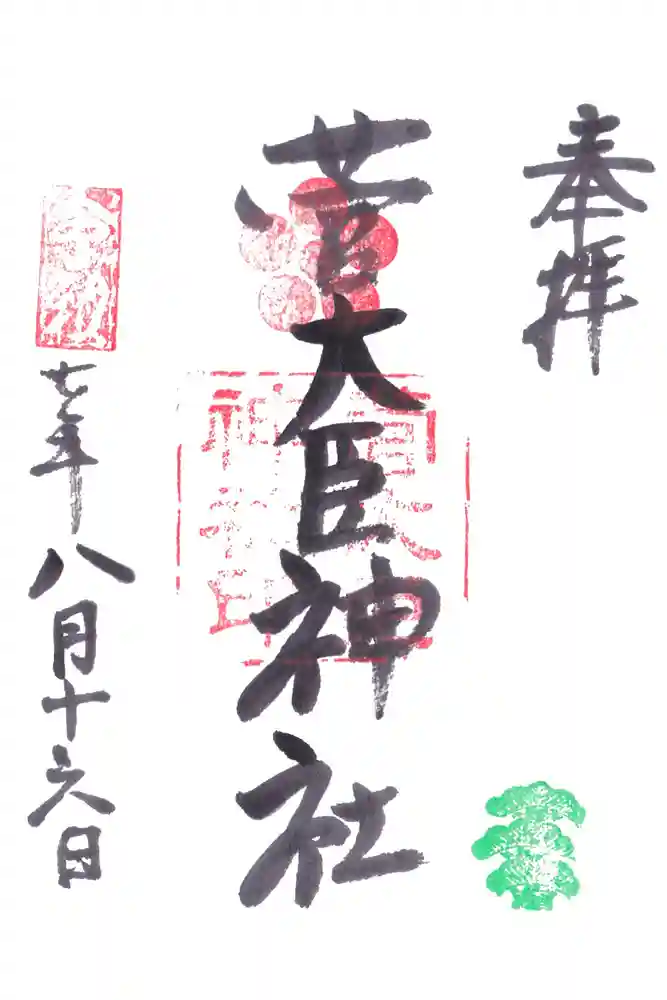 奉拝
菅大臣神社
七年
八月十六日